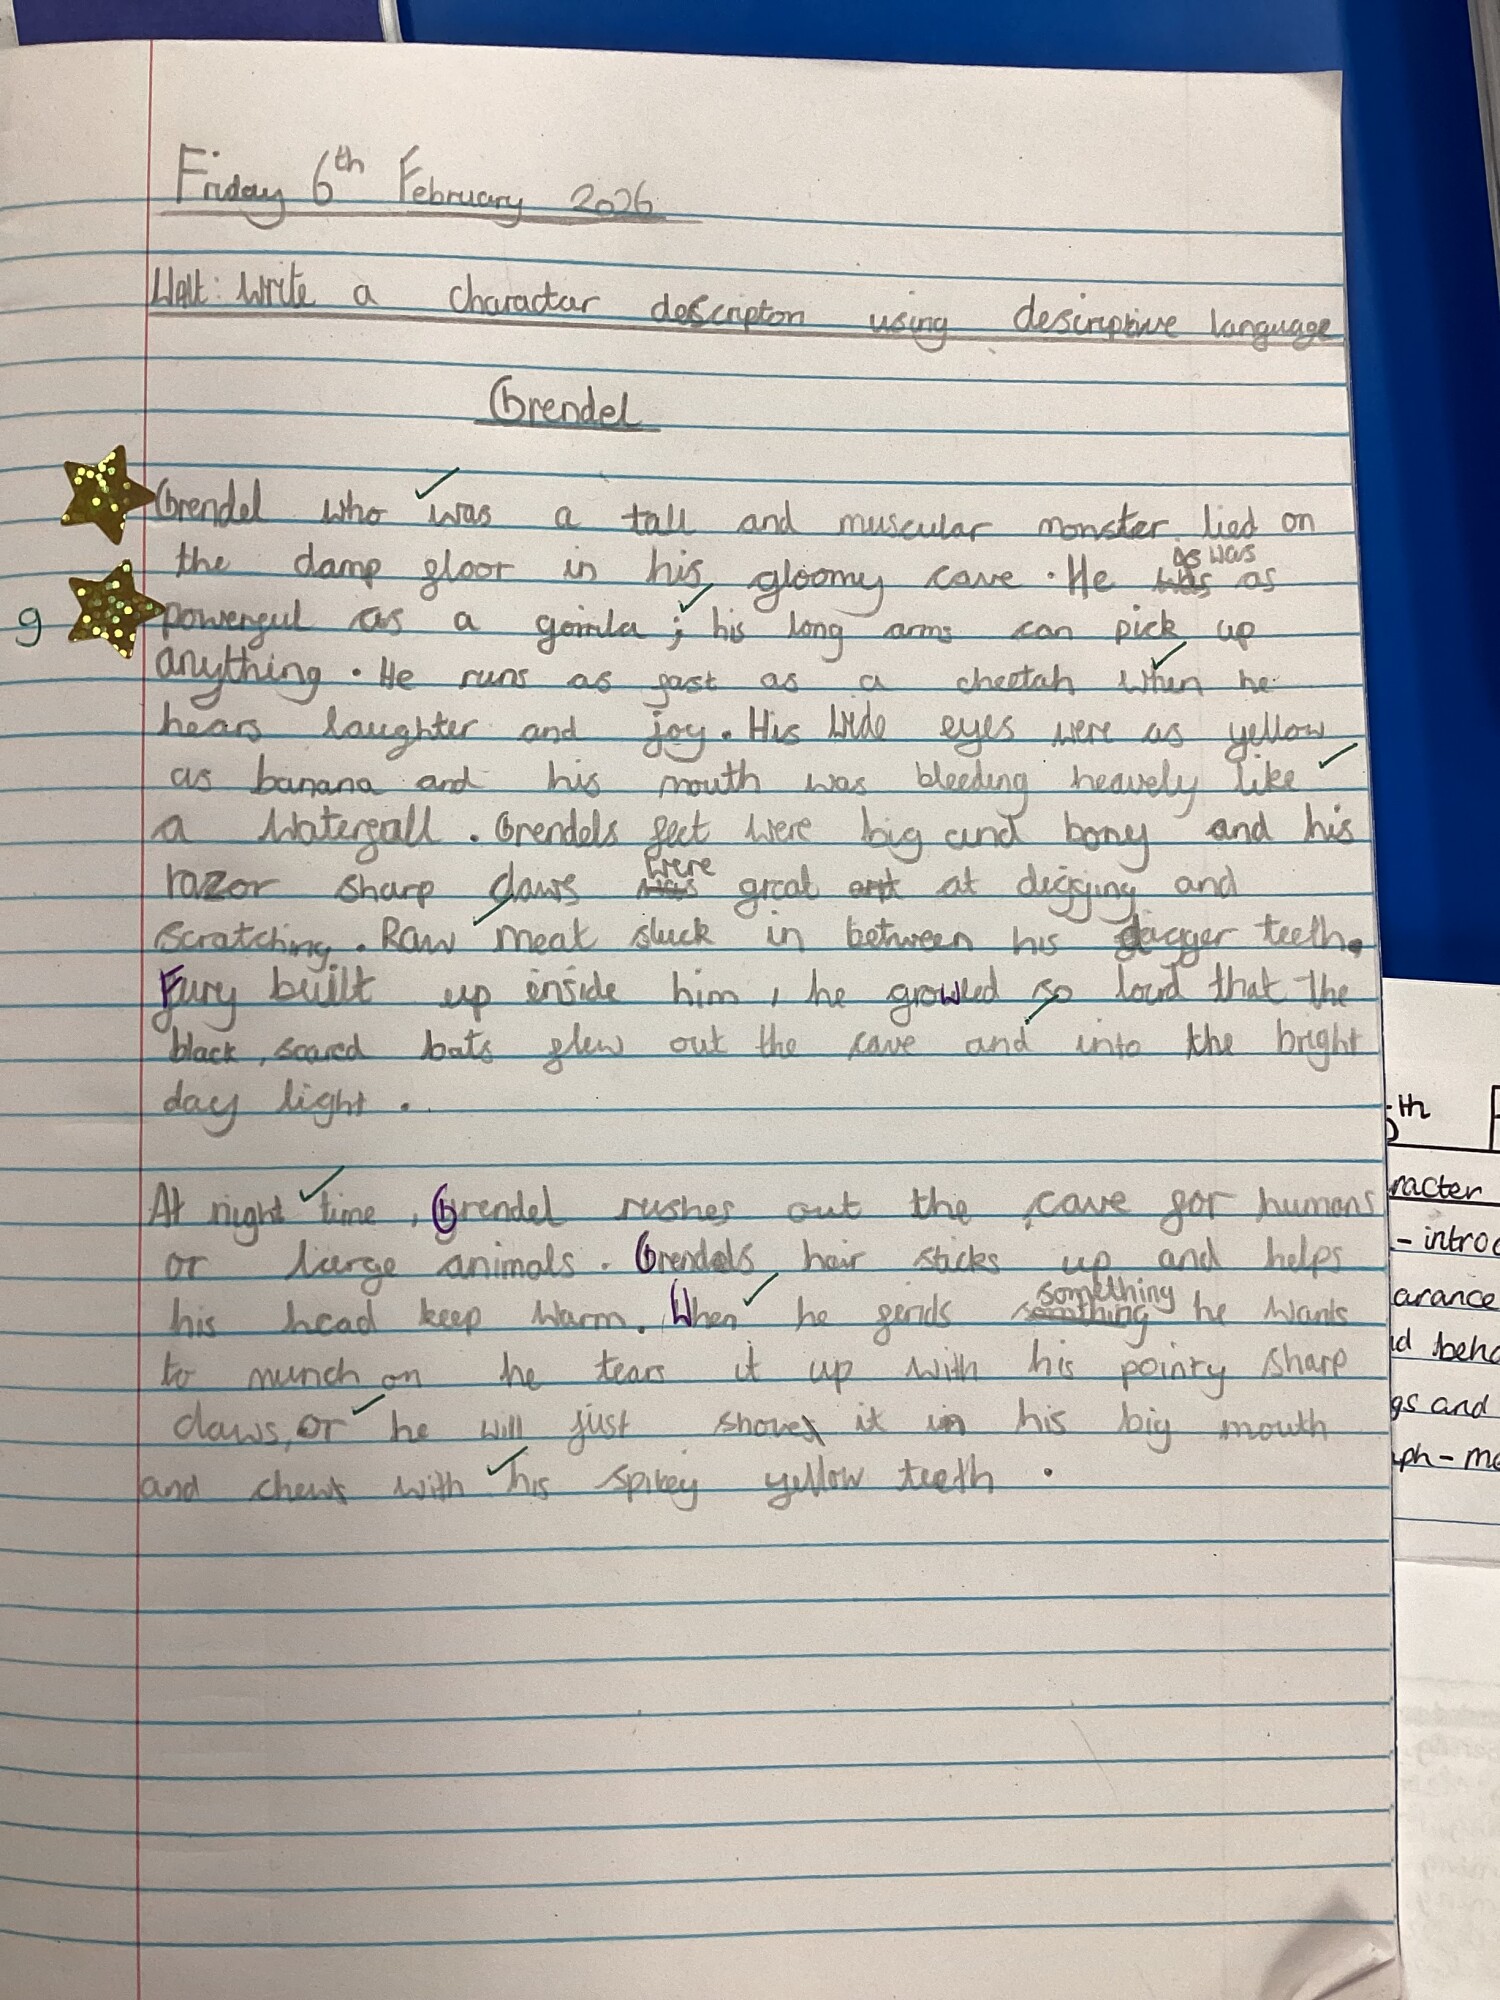 Friday 6th February 2026
Walt: Write a charactar descripton using descriptive language
Grendel
Grendel who was a tall and muscular monster lied on
the damp floor in his gloomy cave. He was as
powerful as a gorrila; his long arms can pick up
g
anything. He runs as fast as a cheetah when he
hears laughter and joy. His wide eyes were as yellow
as banana and his mouth was bleeding heavely like
a waterfall. Grendels feet were big and bony and his
razor sharp claws were great at digging and
scratching. Raw meat stuck in between his dagger teeth.
Fury built up inside him, he growled so loud that the
black, scared bats flew out the cave and into the bright
day light.
At night time, Grendel rushes out the cave for humans
or large animals. Grendels hair sticks up and helps
his head keep warm. When he finds something he wants
to munch on he tears it up with his pointy sharp
claws, or he will just shove it in his big mouth
and chews with his spikey yellow teeth.
th
racter
- introd
arance
d beha
gs and
ph - me